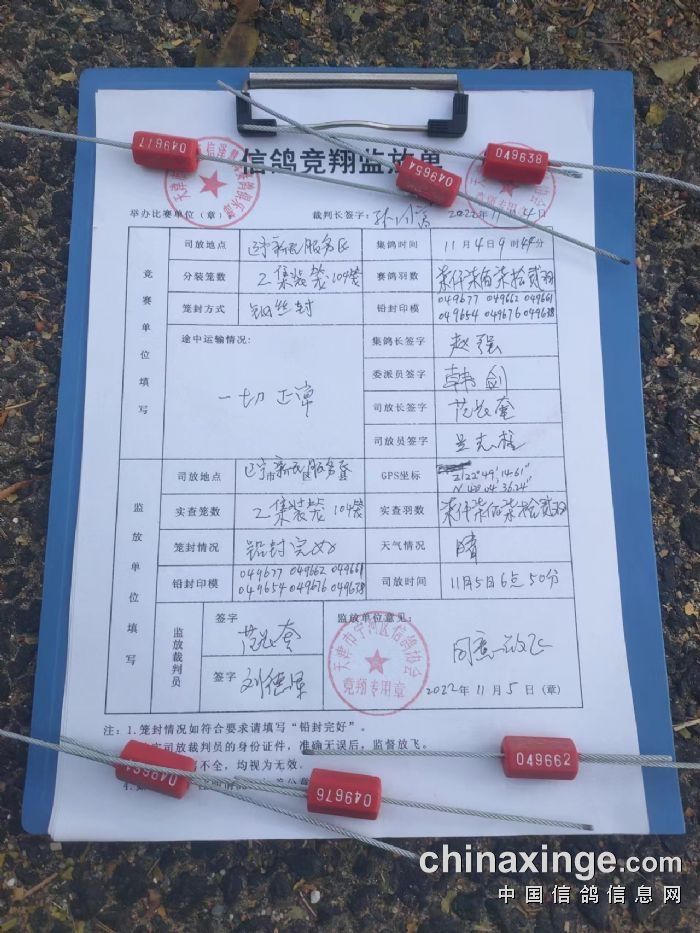 049677
049638
049654
信鸽竞翔监放单
举办比赛单位（章）
裁判长签字：
2022年11月4日
竞赛单位填写
司放地点 辽宁新民服务区 集鸽时间 11月4日9时44分
分装笼数 2集装笼 104笼 赛鸽羽数 柒仟柒佰柒拾贰羽
笼封方式 钢丝封 铅封印模 049677 049662 049661
049654 049676 049638
途中运输情况： 集鸽长签字 赵强
一切正常 委派员签字 韩剑
司放长签字
司放员签字
监放单位填写
司放地点 辽宁市新民区服务县 GPS坐标
实查笼数 2集装笼 104笼 实查羽数 柒仟柒佰柒拾贰羽
笼封情况 铅封完好 天气情况 晴
铅封印模 049677 049662 049661
049654 049676 049638 司放时间 11月5日6点50分
监放裁判员
签字
签字 刘德
监放单位意见：
同意放飞
天津市宁河区信鸽协会
竞翔专用章
2022年11月5日（章）
注：1.笼封情况如符合要求请填写“铅封完好”。
实司放裁判员的身份证件，准确无误后，监督放飞。
不全，均视为无效。
049662
049661
049676
chinaxinge.com
中国信鸽信息网